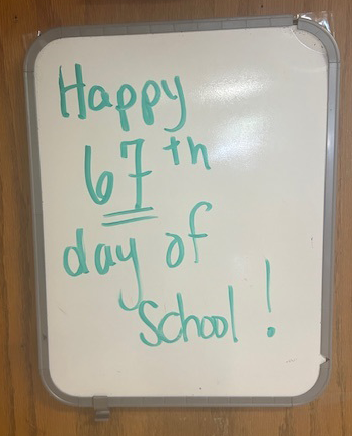 Happy
67th
day of
School!